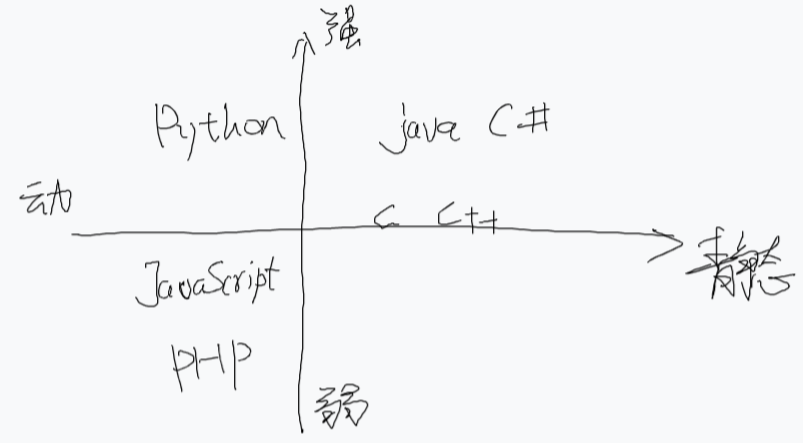 强
Python java C#
动
C C++
静态
JavaScript
PHP
弱